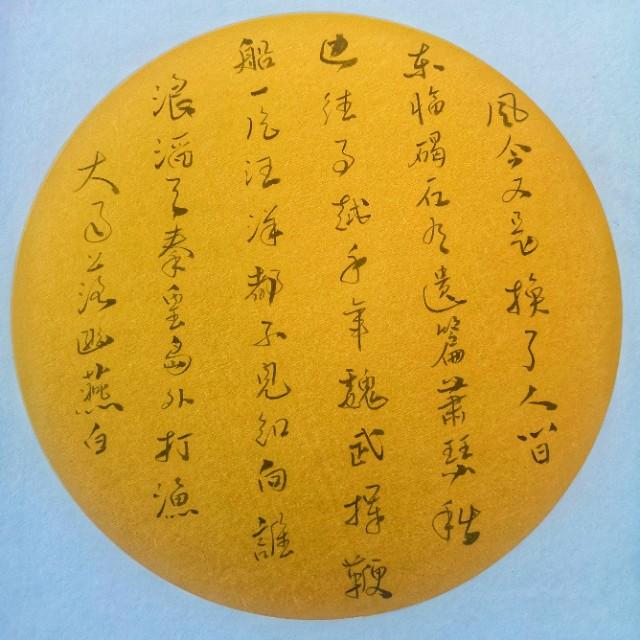 大雨落幽燕白
浪滔天秦皇島外打漁
船一片汪洋都不見知向誰
边往事越千年魏武揮鞭
东临碣石有遺篇蕭瑟秋
風今又是換了人间